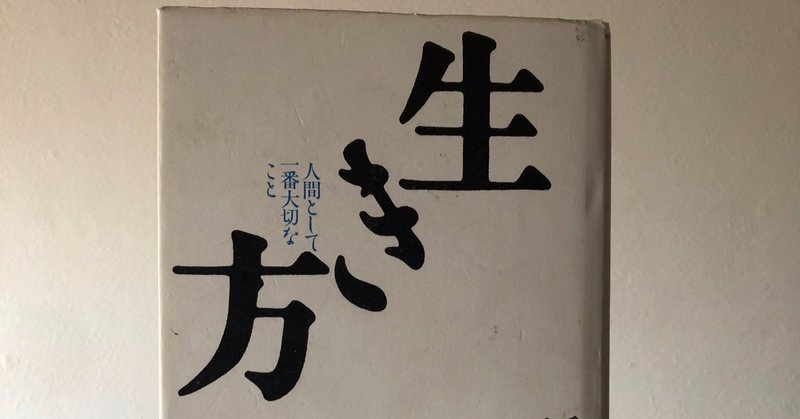 生き方
人間として
一番大切な
こと